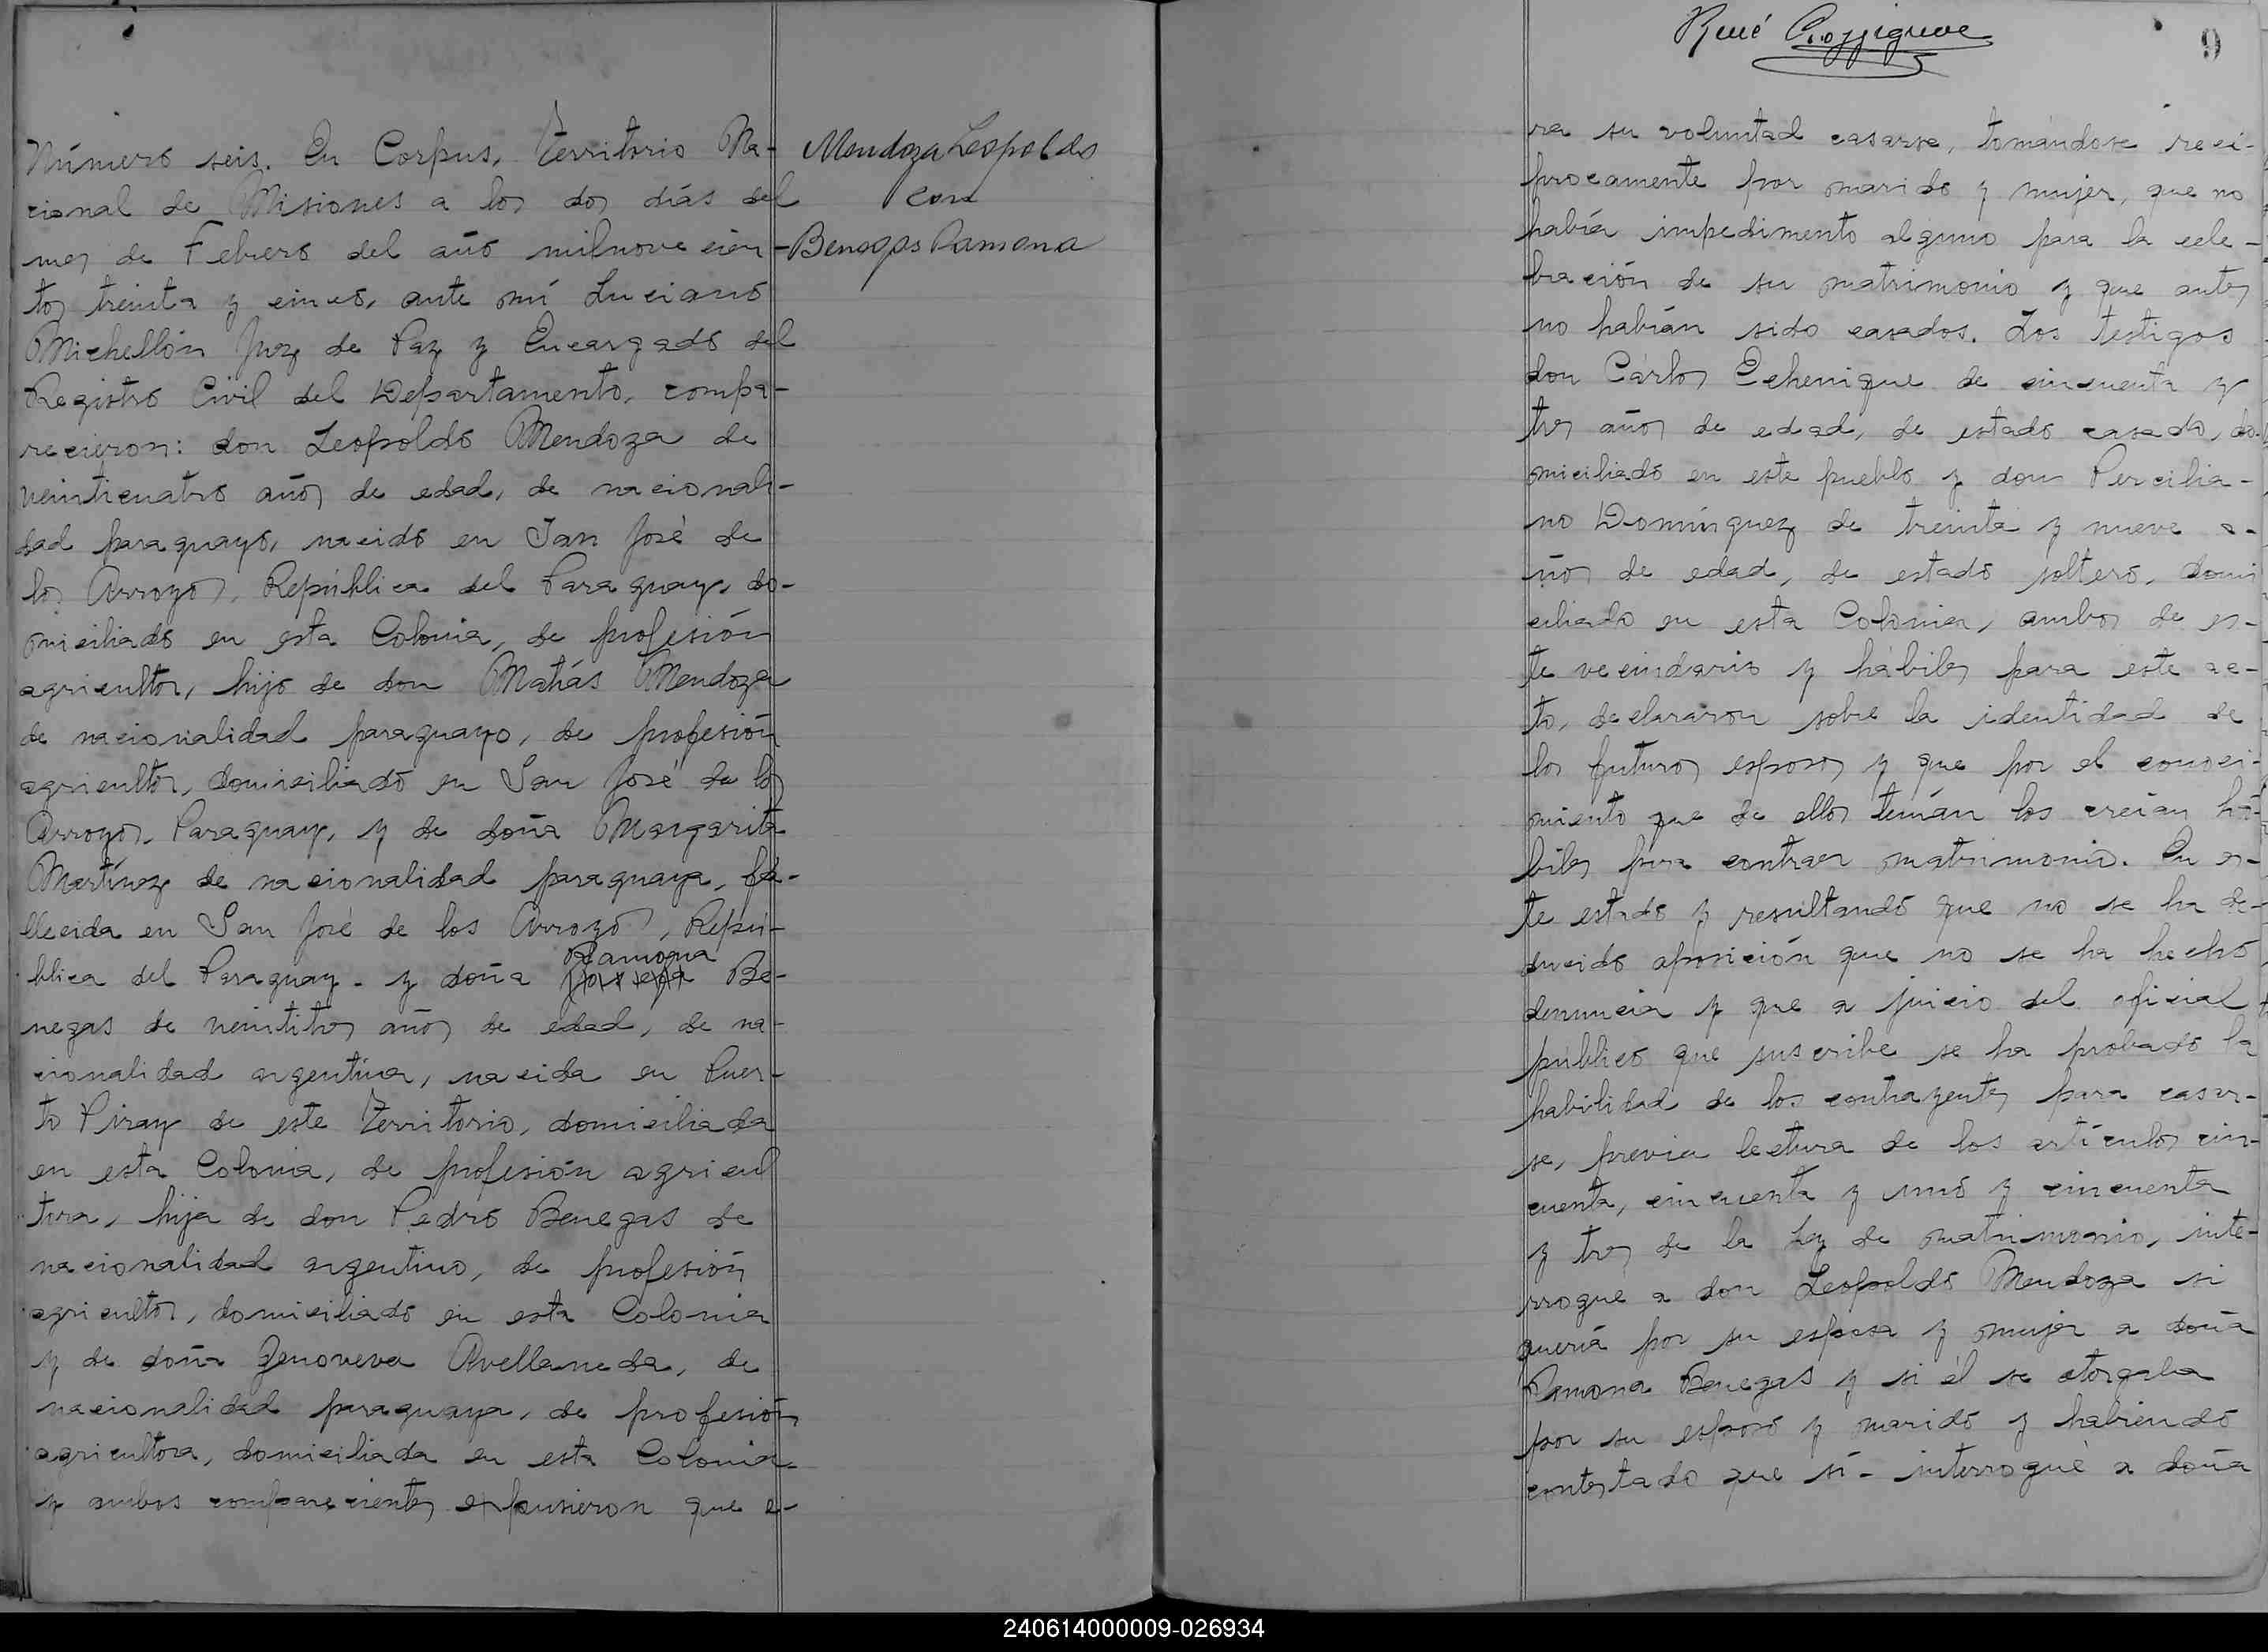 Número seis. En Corpus, Territorio Na-
cional de Misiones a los dos días del
mes de Febrero del año milnovecien-
tos treinta y cinco, ante mí Luciano
Michellón Juez de Paz y Encargado del
Registro Civil del Departamento, compa-
recieron: don Leopoldo Mendoza de
veinticuatro años de edad, de nacionali-
dad paraguayo, nacido en San José de
los Arroyos, República del Paraguay, do-
miciliado en esta Colonia, de profesión
agricultor, hijo de don Matías Mendoza
de nacionalidad paraguayo, de profesión
agricultor, domiciliado en San José de los
Arroyos, Paraguay, y de doña Margarita
Martínez de nacionalidad paraguaya, fa-
llecida en San José de los Arroyos, Repú-
Ramona
blica del Paraguay - y doña Josefa Be-
negas de veintitres años de edad, de na-
cionalidad argentina, nacida en Puer-
to Piray de este Territorio, domiciliada
en esta Colonia, de profesión agricul
tora, hija de don Pedro Benegas de
nacionalidad argentino, de profesión
agricultor, domiciliado en esta Colonia
y de doña Genoveva Avellaneda, de
nacionalidad paraguaya, de profesión
agricultora, domiciliada en esta Colonia-
y ambos comparecientes expusieron que e-
Mendoza Leopoldo
con
Benegas Ramona
René
9
ra su voluntad casarse, tomándose recí-
procamente por marido y mujer, que no
había impedimento alguno para la cele-
bración de su matrimonio y que antes
no habían sido casados. Los testigos
don Cárlos Echenique de cincuenta y
tres años de edad, de estado casado, do-
miciliado en este pueblo y don Percilia-
no Domínguez de treinta y nueve a-
ños de edad, de estado soltero, domi
ciliado en esta Colonia, ambos de es-
te vecindario y hábiles para este ac-
to, declararon sobre la identidad de
los futuros esposos y que por el conoci-
miento que de ellos tenían los creían há-
biles para contraer matrimonio. En es-
te estado y resultando que no se ha de-
ducido oposición que no se ha hecho
denuncia y que a juicio del oficial
público que suscribe se ha probado la
habilidad de los contrayentes para casar-
se, previa lectura de los artículos cin-
cuenta, cincuenta y uno y cincuenta
y tres de la Ley de matrimonio, inte-
rrogué a don Leopoldo Mendoza si
quería por su esposa y mujer a doña
Ramona Benegas y si él se otorgaba
por su esposo y marido y habiendo
contestado que sí - interrogué a doña
240614000009-026934